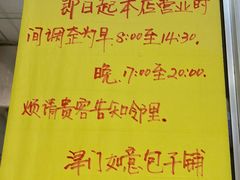 即日起本店营业时
间调整为早.8:00至14:30.
晚.17:00至20:00.
烦请贵客告知邻里.
津门如意包子铺